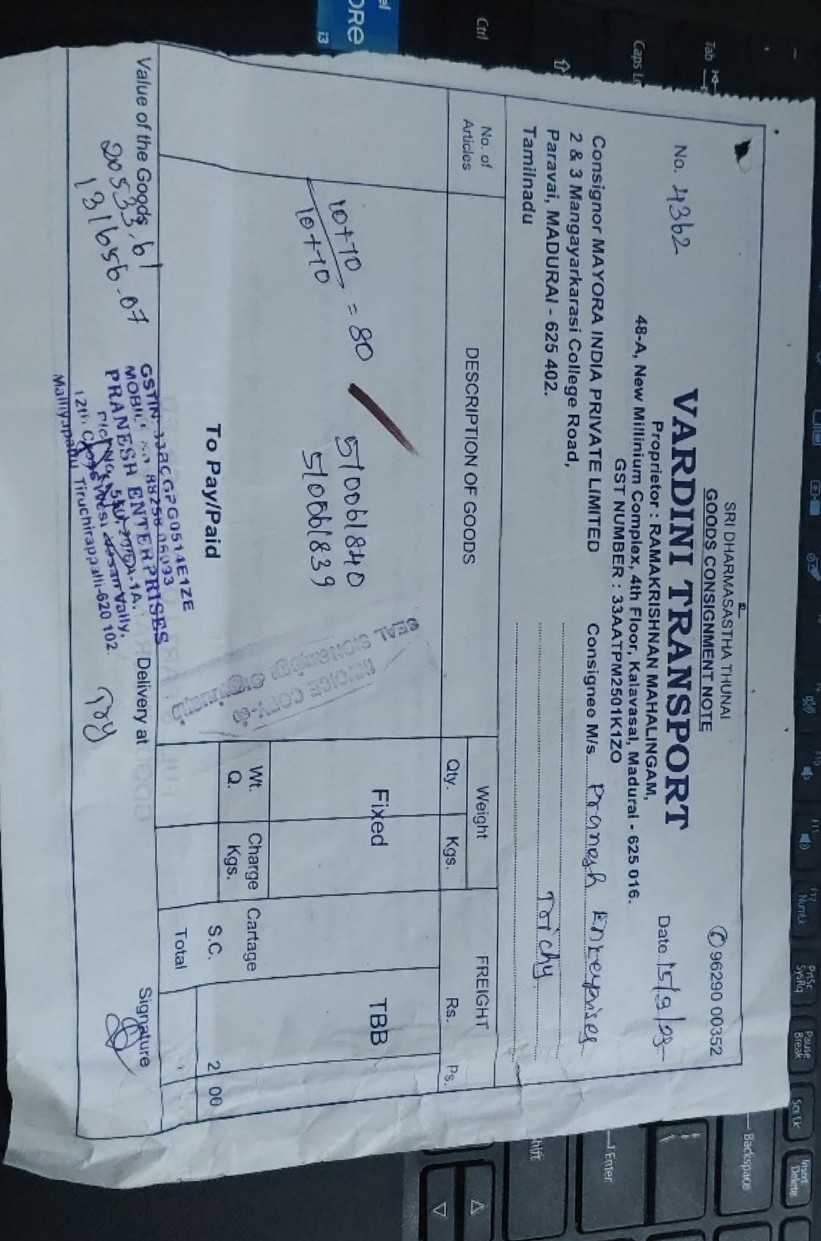 SRI DHARMASASTHA THUNAI
GOODS CONSIGNMENT NOTE
✆ 96290 00352
VARDINI TRANSPORT
No. 4362
Proprietor : RAMAKRISHNAN MAHALINGAM,
Date 15/9/23
48-A, New Millinium Complex, 4th Floor, Kalavasal, Madurai - 625 016.
GST NUMBER : 33AATPM2501K1ZO
Consignor MAYORA INDIA PRIVATE LIMITED
2 & 3 Mangayarkarasi College Road,
Paravai, MADURAI - 625 402.
Tamilnadu
Consignee M/s. Pranesh Enterprises
Trichy
No. of Articles
DESCRIPTION OF GOODS
Weight
Qty. Kgs.
FREIGHT
Rs. Ps.
10+70
10+70
= 80
510061840
510061839
Fixed
TBB
To Pay/Paid
Wt. Q.
Charge Kgs.
Cartage
S.C.
2 00
Total
Value of the Goods
20533.61
131656.07
PRANESH ENTERPRISES
Tiruchirappalli-620 102.
Delivery at
Try
Signature
Tab
Caps
Ctrl
i3
NumLk
PrtSc
SysRq
Pause
Break
ScrLk
Insert
Delete
Backspace
Enter